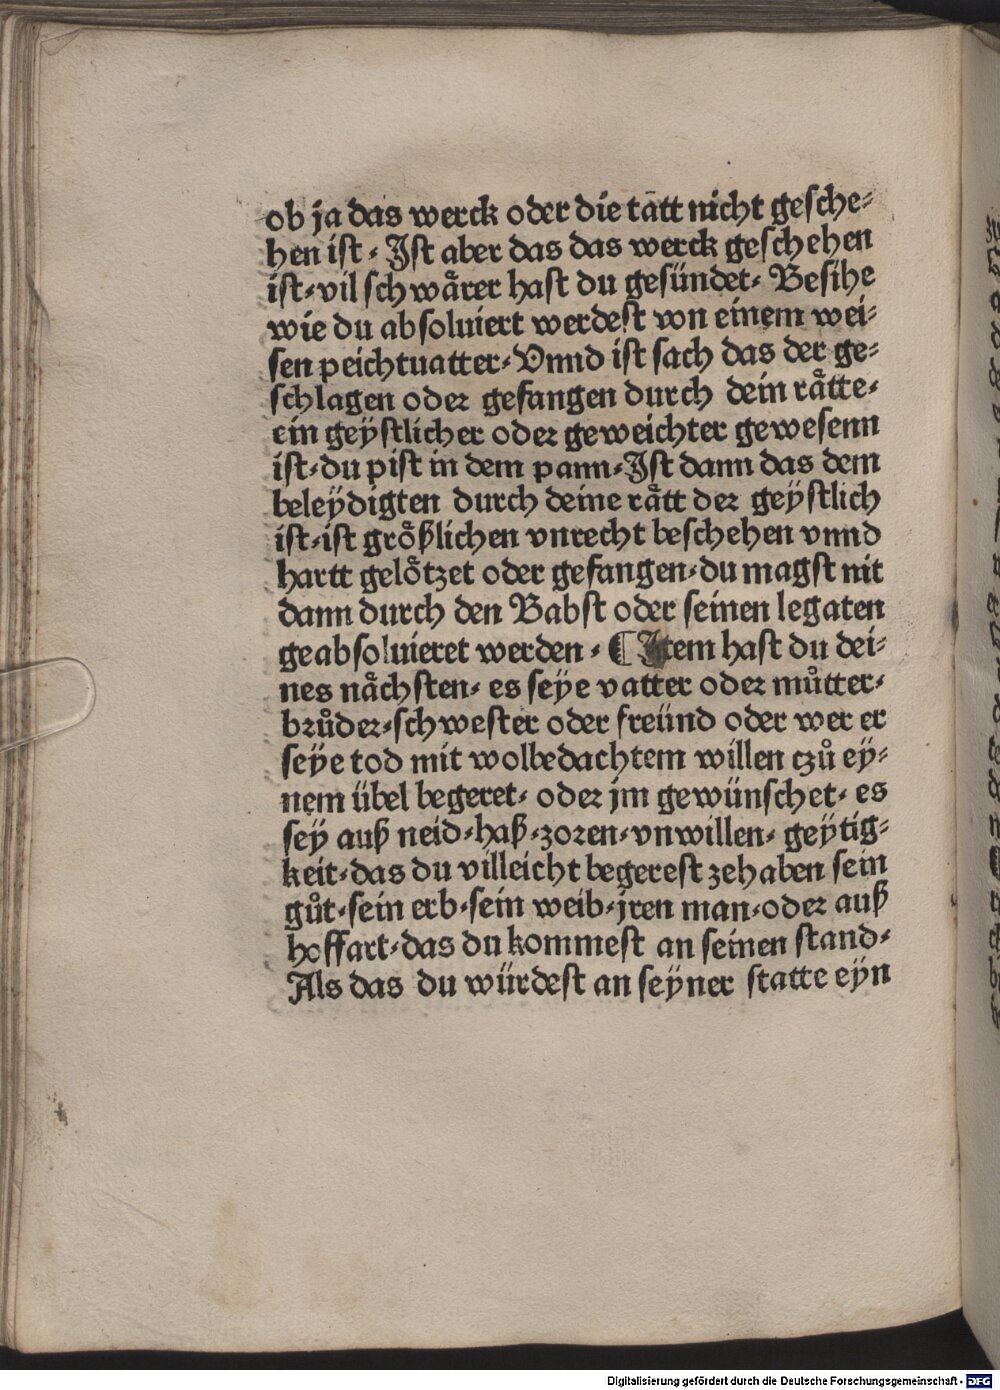 ob ja das werck oder die tätt nicht gesche-
hen ist. Ist aber das das werck geschehen
ist. vil schwårer hast du gesündet. Besihe
wie du absoluiert werdest von einem wei-
sen peichtuatter. Unnd ist sach das der ge-
schlagen oder gefangen durch dein rått.
ein geÿstlicher oder geweichter gewesenn
ist. du pist in dem pann. Ist dann das dem
beleÿdigten durch deine rått der geÿstlich
ist. ist grőßlichen vnrecht beschehen vnnd
hartt gelőtzet oder gefangen. du magst nit
dann durch den Babst oder seinen legaten
geabsoluieret werden. ¶ Item hast du dei-
nes nåchsten. es seÿe vatter oder můtter.
brůder. schwester oder freünd oder wer er
seÿe tod mit wolbedachtem willen czů eÿ-
nem übel begeret. oder jm gewünschet. es
seÿ auß neid. haß. zoren. vnwillen. geÿtig-
keit. das du villeicht begerest zehaben sein
gůt. sein erb. sein weib. jren man. oder auß
hoffart. das du kommest an seinen stand.
Als das du würdest an seÿner statte eÿn
Digitalisierung gefördert durch die Deutsche Forschungsgemeinschaft - DFG